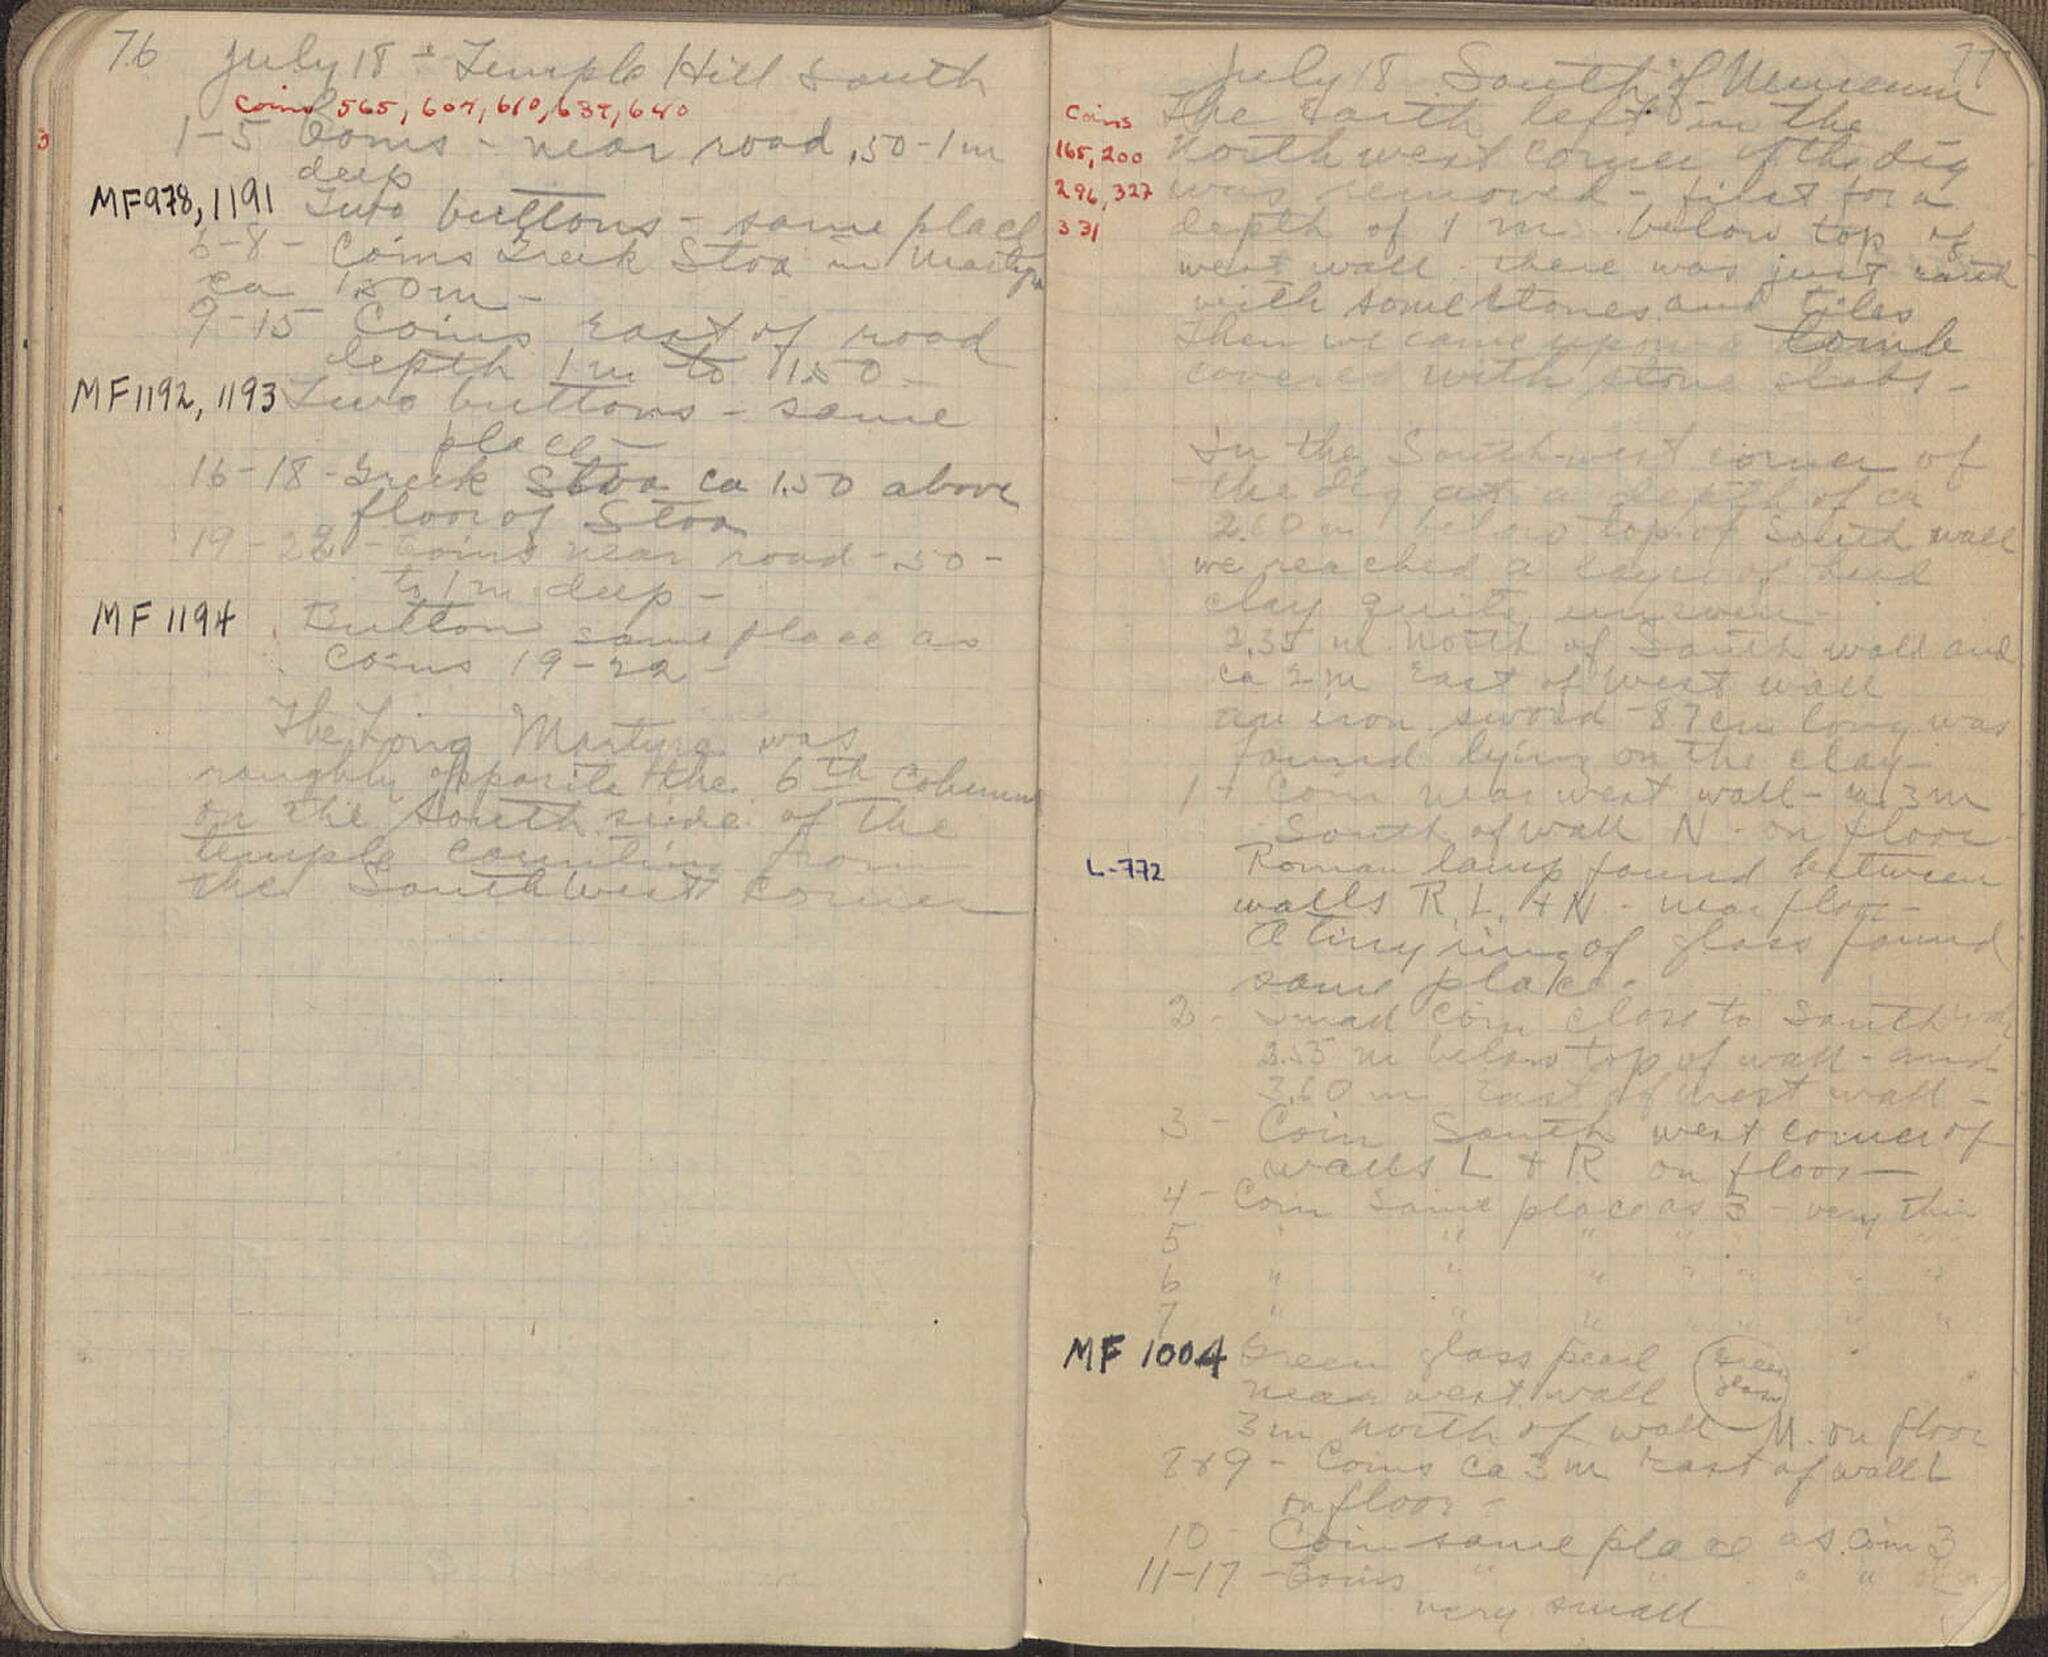 76 July 18 - Temple Hill South
Coins 565, 607, 610, 637, 640
3
1-5 Coins - near road .50-1m
deep
MF978, 1191 Two buttons - same place
6-8 - Coins Greek Stoa in Martyra
ca 1.50m -
9-15 Coins East of road
depth 1m to 1.50 -
MF1192, 1193 Two buttons - same
place -
16-18 - Greek Stoa ca 1.50 above
floor of Stoa
19-22 - Coins near road - .50 -
to 1m deep -
MF 1194 Button same place as
Coins 19-22 -
The Long Martyra was
roughly opposite the 6th Column
on the South side of the
temple counting from
the South West corner
77
July 18 South of Museum
Coins
165, 200
296, 327
331
The Earth left in the
North west corner of the dig
was removed - first for a
depth of 1 m below top of
west wall there was just earth
with some stones and tiles
Then we came upon a tomb
covered with stone slabs -
In the South-west corner of
the dig at a depth of ca
2.60 m below top of South wall
we reached a layer of hard
clay quite uneven -
2.35 m North of South wall and
ca 2m East of West wall
an iron sword - 87cm long was
found lying on the clay -
1 - Coin near west wall - ca 3m
South of wall N - on floor
L-772 Roman lamp found between
walls R, L, + N - near floor -
A tiny ring of glass found
same place.
2 - Small Coin close to South wall
2.55 m below top of wall - and
3.60 m East of West wall -
3 - Coin South west corner of
walls L + R on floor -
4 - Coin Same place as 3 - very thin
5 " " " " " " "
6 " " " " " " "
7 " " " " " " "
MF 1004 Green glass pearl
Green
glass
near west wall
3m north of wall - M. on floor
8+9 - Coins ca 3m East of wall L
on floor -
10 - Coin same place as Coin 3
11-17 - Coins " " " "
very small